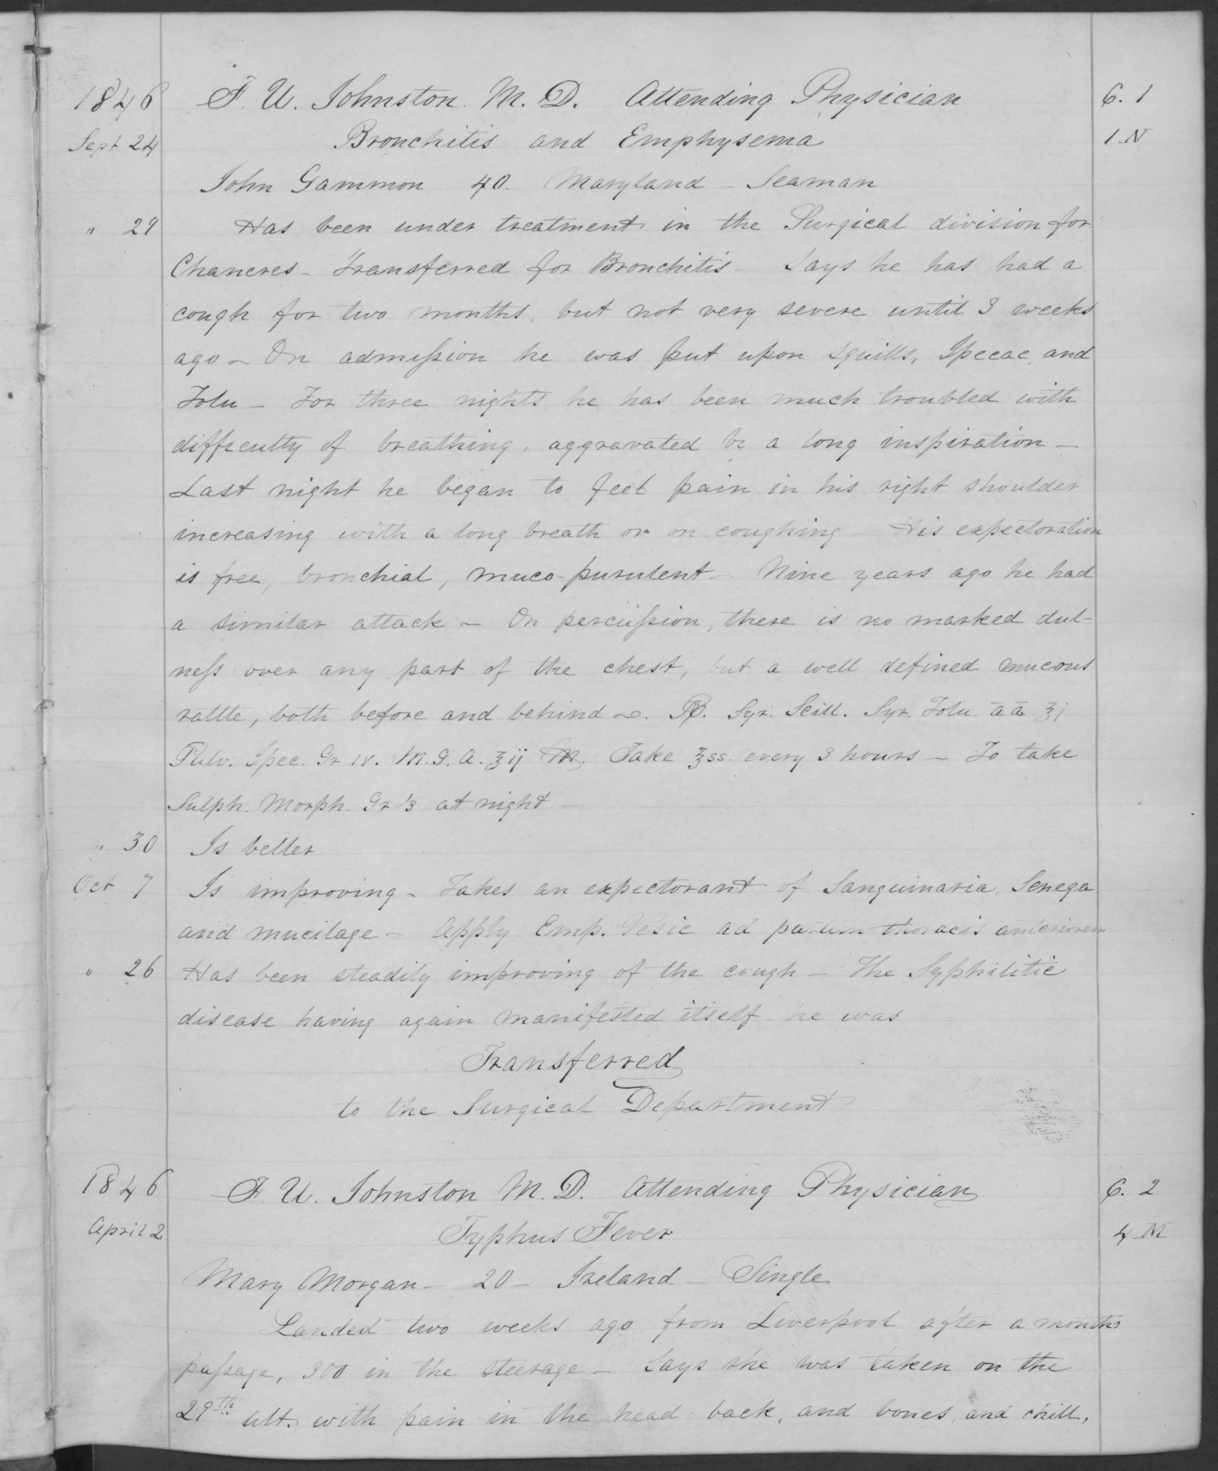 1846 F. U. Johnston M. D. Attending Physician C. 1
Sept 24 Bronchitis and Emphysema 1 N
John Gammon 40. Maryland - Seaman
" 29 Has been under treatment in the Surgical division for
Chancres - Transferred for Bronchitis - Says he has had a
cough for two months but not very severe until 3 weeks
ago - On admission he was put upon Squills, Ipecac, and
Tolu - For three nights he has been much troubled with
difficulty of breathing, aggravated by a long inspiration -
Last night he began to feel pain in his right shoulder
increasing with a long breath or on coughing - His expectoration
is free, bronchial, muco-purulent - Nine years ago he had
a similar attack - On percussion, there is no marked dul-
ness over any part of the chest, but a well defined mucous
rattle, both before and behind - ℞. Syr. Scill. Syr. Tolu. āā ℥j
Pulv. Ipec. Gr iv. M. G. A. ℥ij M. Take ʒss. every 3 hours - To take
Sulph. Morph. Gr ⅓ at night -
" 30 Is better
Oct 7 Is improving - Takes an expectorant of Sanguinaria, Senega
and mucilage - Apply Emp. Vesic ad partem thoracis anteriorem
" 26 Has been steadily improving of the cough - The Syphilitic
disease having again manifested itself he was
Transferred
to the Surgical Department
1846 F. U. Johnston M. D. Attending Physician C. 2
April 2 Typhus Fever 4 M
Mary Morgan - 20 - Ireland - Single
Landed two weeks ago from Liverpool after a month's
passage, 300 in the steerage - Says she was taken on the
29th ult. with pain in the head back, and bones, and chill,